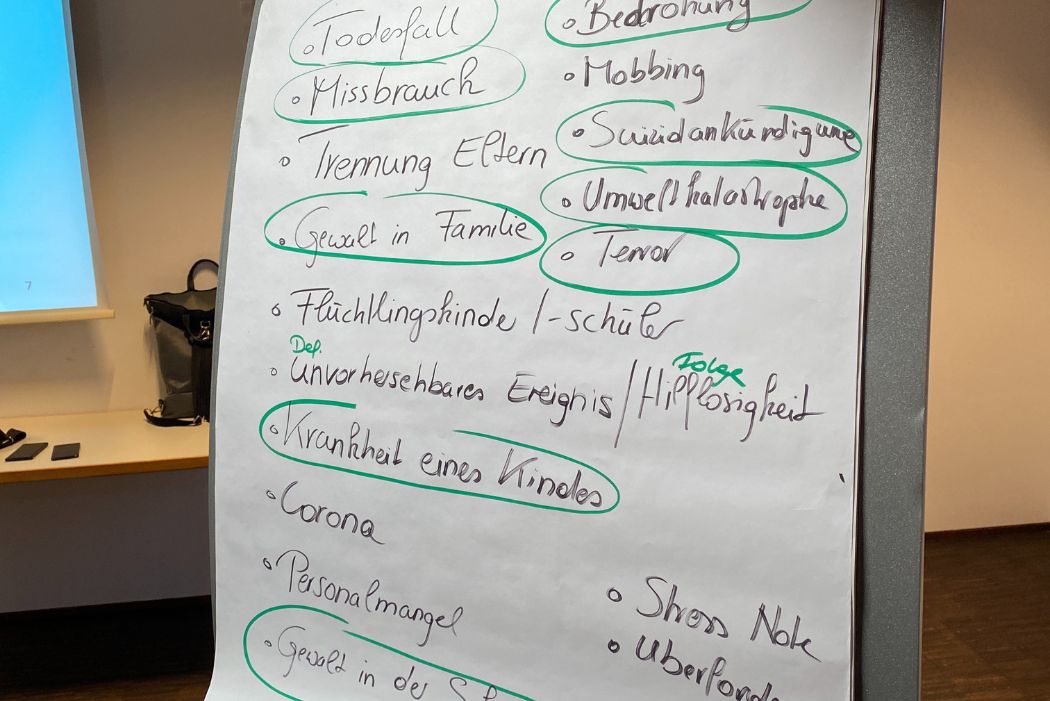 7
Todesfall
Missbrauch
Trennung Eltern
Gewalt in Familie
Bedrohung
Mobbing
Suizidankündigung
Umweltkatastrophe
Terror
Flüchtlingskinder /-schüler
Def.
Unvorhersehbares Ereignis / Hilflosigkeit
Folge
Krankheit eines Kindes
Corona
Personalmangel
Gewalt in der
Stress Note